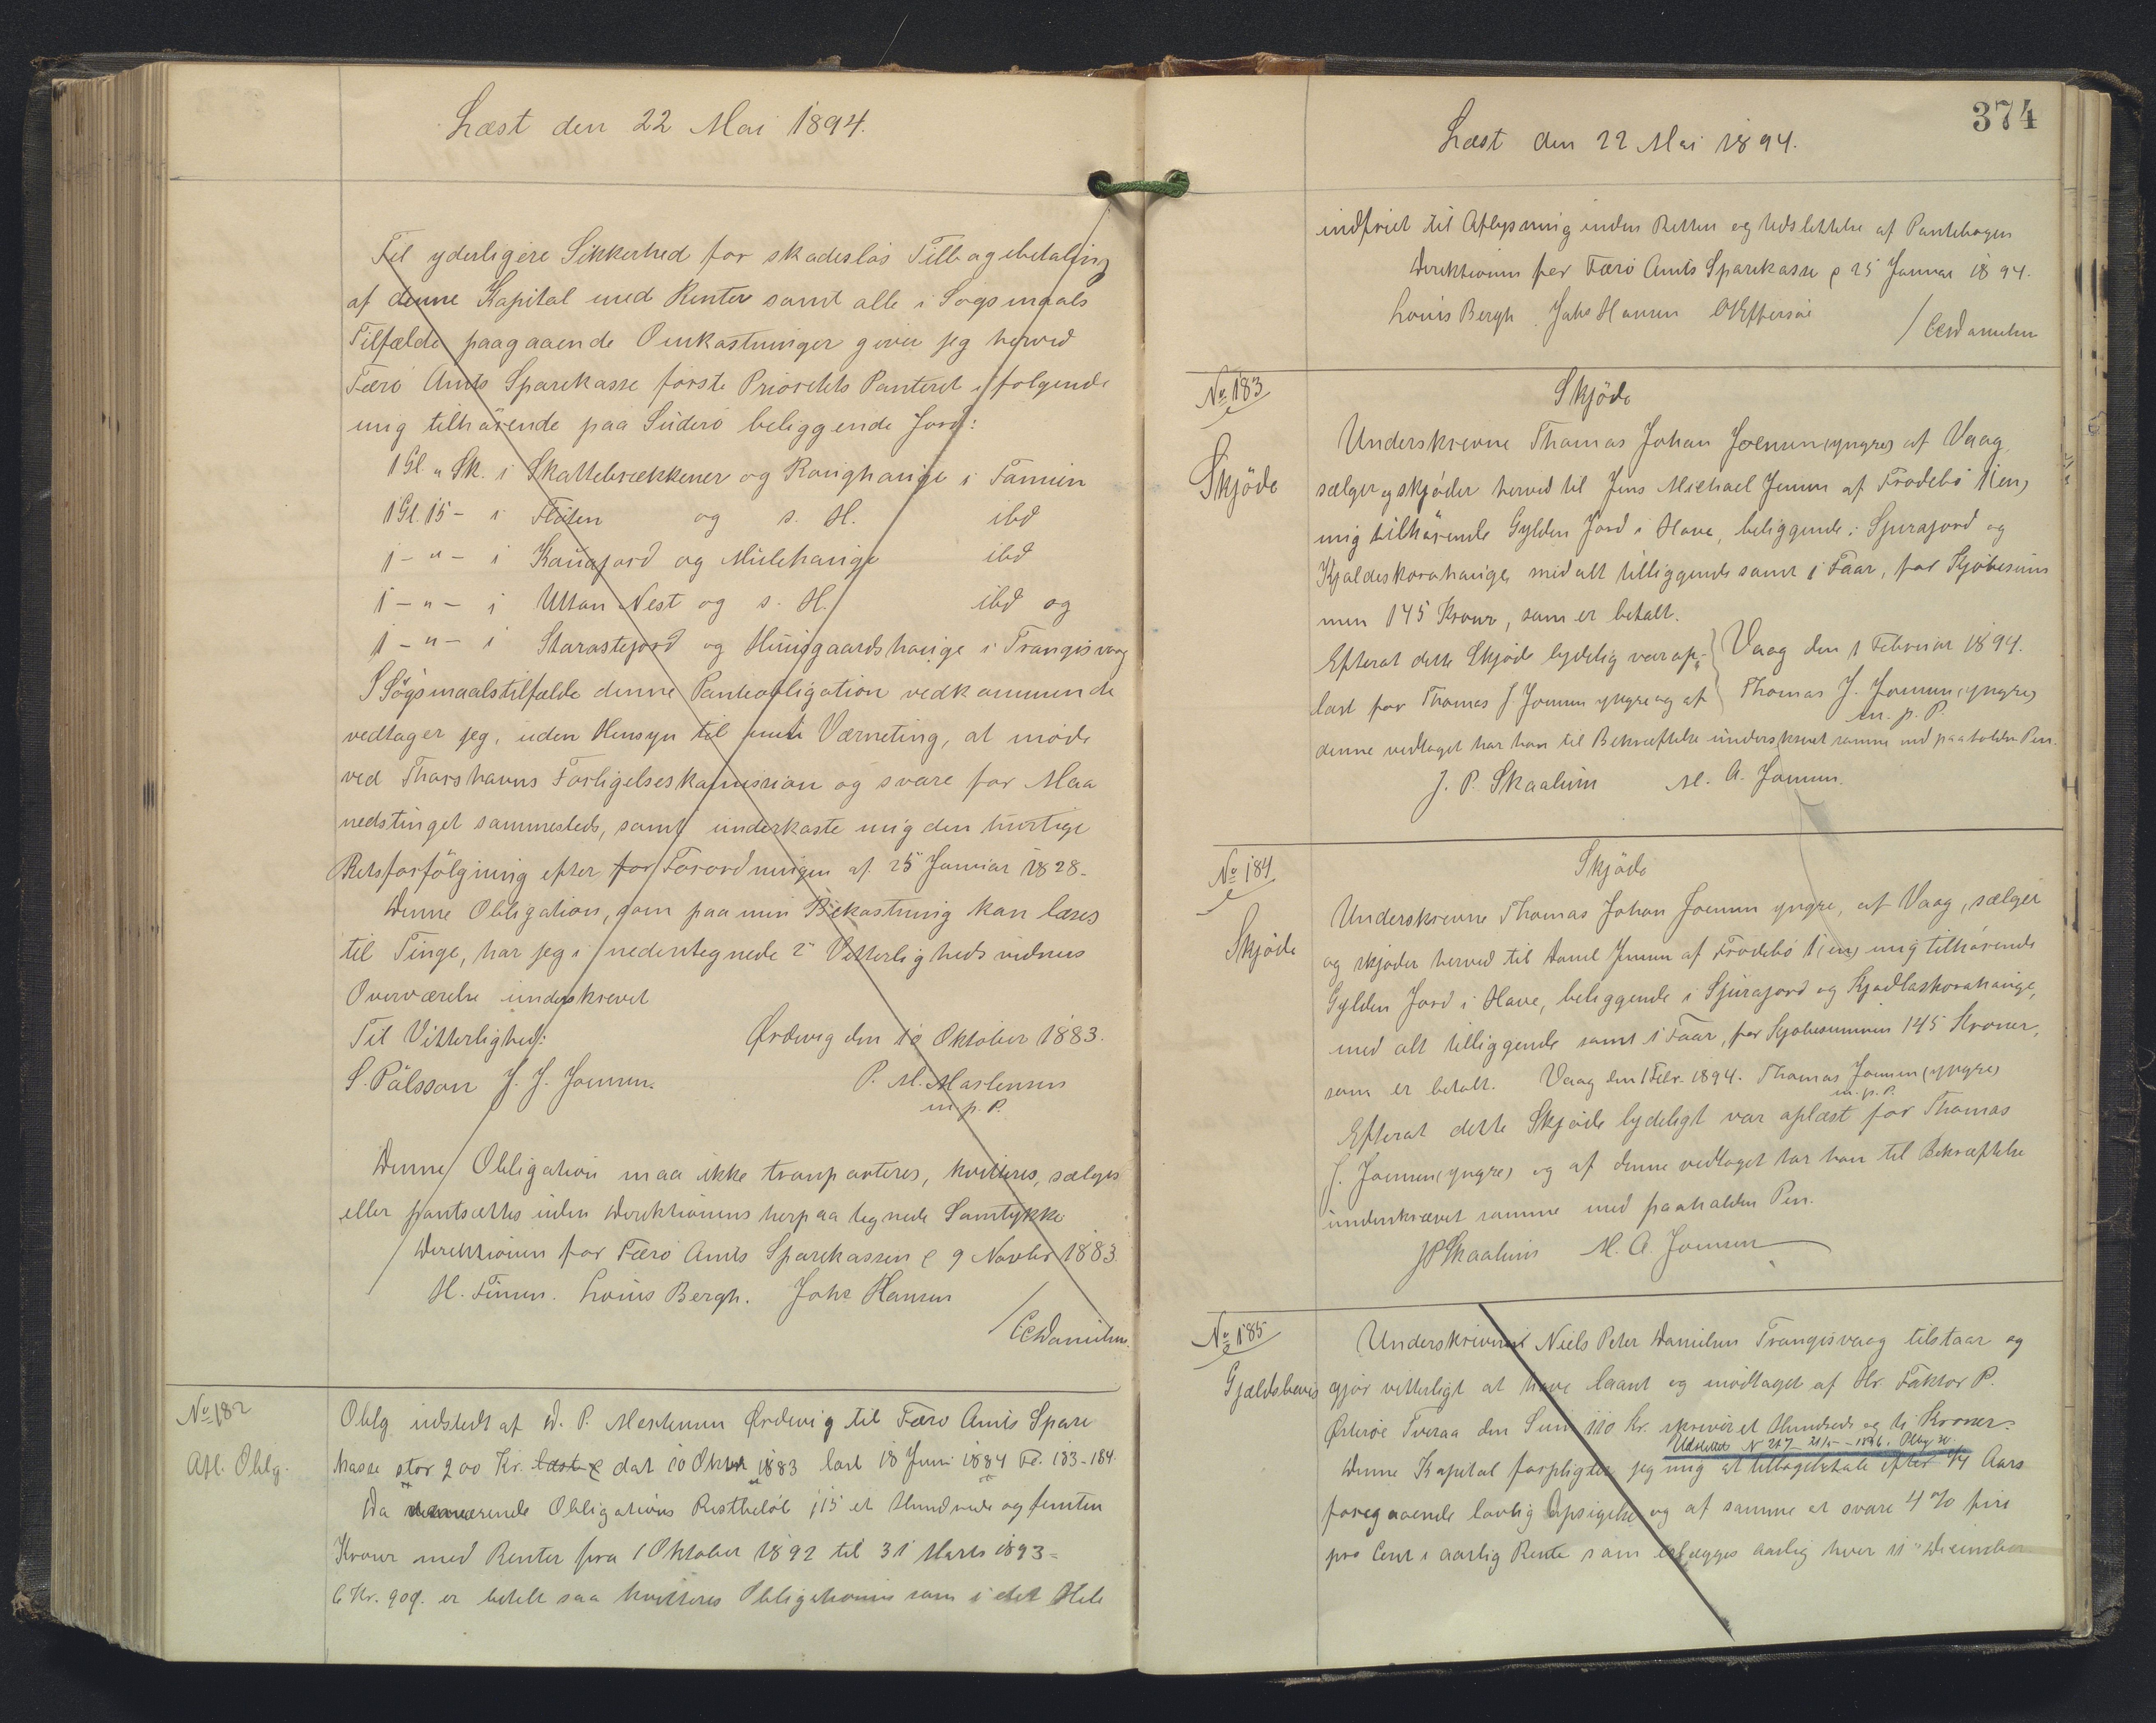 Læst den 22 Mai 1894.
Til yderligere Sikkerhed for skadeslös Tilbagebetaling
af denne Kapital med Renter samt alle i Sögsmaals
Tilfælde paagaaende Omkastninger giver jeg herved
Færö Amts Sparekasse förste Prioritets Panteret i følgende
mig tilhörende paa Süderö beliggende Jord:
1 Gl. " Sk. i Skattebrekkener og Ranghauge i Famien
1 Gl. 15 - i Flöten og s. H. ibd
1 - " - i Kauajord og Mülehauge ibd
1 - " - i Uttan Nest og s. H. ibd og
1 - " - i Starastejord og Huusgaardshauge i Trangisvaag
I Sögsmaalstilfælde denne Panteobligation vedkommende
vedtager jeg, uden Hensyn til mit Værneting, at möde
ved Thorshavns Forligelseskomission og svare for Maa
nedstinget sammesteds, samt underkaste mig den hurtige
Retsforfölgning efter for Forordningen af 25 Januar 1828.
Denne Obligation, som paa min Bekostning kan læses
til Tinge, har jeg i nedentegnede 2 Vitterlighedsvidners
Overværelse underskrevet
Til Vitterlighed: Ørdevig den 10 Oktober 1883.
S. Pálsson J. J. Joensen. P. M. Mortensen
m. p. P.
Denne Obligation maa ikke transporteres, kvitteres, sælges
eller pantsættes uden Direktionens herpaa tegnede Samtykke
Direktionen for Færö Amts Sparekassen d 9 Novbr 1883
H. Finsen. Louis Bergh. Johs Hansen
/ CC Danielsen.
No 182
Afl. Oblg.
Oblg. udstedt af D. P. Mortensen Ørdevig til Færö Amts Spare
kasse stor 200 Kr. læst d dat 10 Oktbr 1883 læst 18 Juni 1884 Fol. 183-184.
Da nærværende Obligations Restbelöb 115 et Hundrede og femten
Kroner med Renter fra 1 Oktober 1892 til 31 Marts 1893 =
6 Kr. 90 ø. er betalt saa kvitteres Obligationen som i det Hele
374
Læst den 22 Mai 1894.
indfriet til Aflysning inden Retten og Udslettelse af Pantebogen
Direktionen for Færö Amts Sparekasse d 25 Januar 1894.
Louis Bergh Johs Hansen O Effersöe
/ CC Danielsen
No 183
Skjöde
Skjöde
Underskrevne Thomas Johan Joensen (yngre) af Vaag
sælger og skjöder herved til Jens Michael Jensen af Frodebö 1 (en)
mig tilhörende Gylden Jord i Have, beliggende i Spurajord og
Kjaldeskorahauge, med alt tilliggende samt 1 Faar, for Kjöbesum
men 145 Kroner, som er betalt.
Efterat dette Skjöde lydelig var op- Vaag den 1 Februar 1894.
læst for Thomas J. Joensen yngre og af Thomas J. Joensen (yngre)
m. p. P.
denne vedtaget har han til Bekræftelse underskrevet samme med paaholden Pen.
J. P. Skaalum M. A. Joensen.
No 184
Skjöde
Skjöde
Underskrevne Thomas Johan Joensen yngre, af Vaag, sælger
og skjöder herved til Daniel Jensen af Frodebö 1 (en) mig tilhörende
Gylden Jord i Have, beliggende i Spurajord og Kjadlaskorahauge,
med alt tilliggende samt 1 Faar, for Kjöbesummen 145 Kroner,
som er betalt. Vaag den 1 Febr. 1894. Thomas Joensen (yngre)
m. p. P.
Efterat dette Skjöde lydeligt var oplæst for Thomas
J. Joensen (yngre) og af denne vedtaget har han til Bekræftelse
underskrevet samme med paaholden Pen.
JP Skaalum M. A. Joensen
No 185
Gjældsbevis
Underskrevne Niels Peter Danielsen Trangisvaag tilstaar og
gjör vitterligt at have laant og modtaget af Hr. Faktor P.
Østeröe Tveraa den Sum 110 Kr. skriver et Hundrede og ti Kroner.
Udslettet N 217 21/5 - 1896.
Denne Kapital forpligter jeg mig at tilbagebetale efter 1/4 Aars
foregaaende lovlig Opsigelse og af samme at svare 4 % fire
pro Cent i aarlig Rente som erlægges aarlig hver 11 December